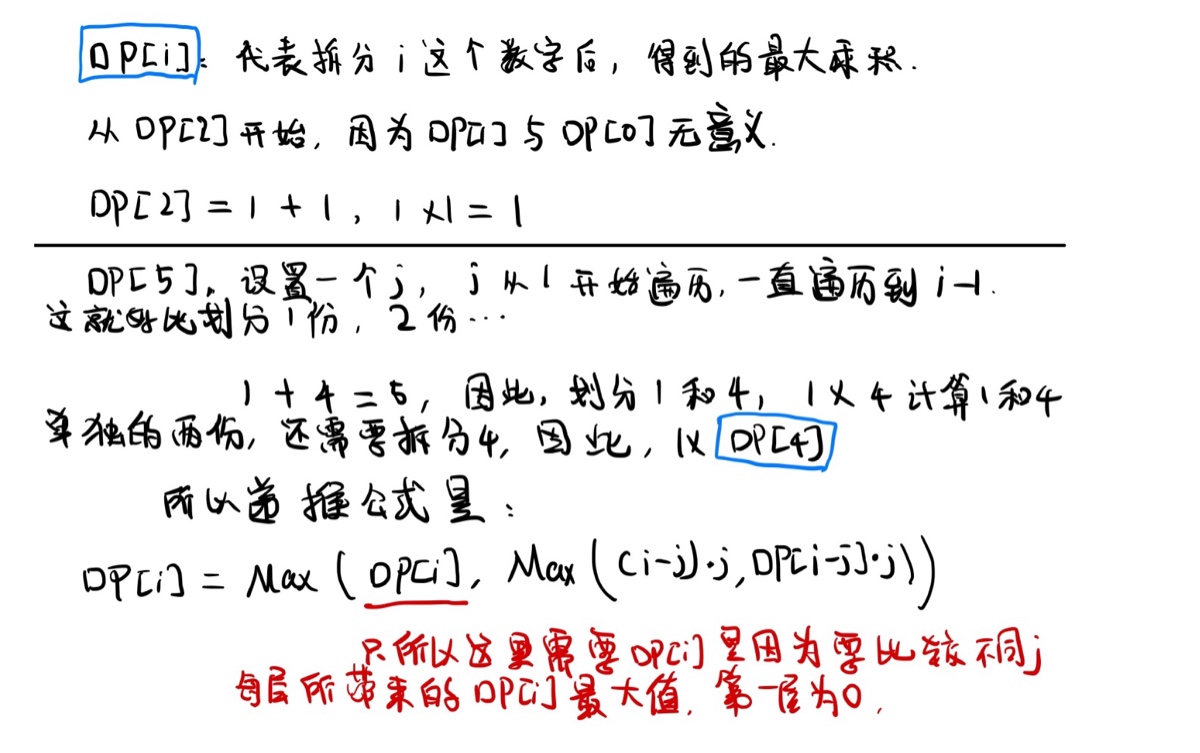 DP[i]: 代表拆分 i 这个数字后, 得到的最大乘积.
从 DP[2] 开始, 因为 DP[1] 与 DP[0] 无意义.
DP[2] = 1 + 1, 1 × 1 = 1
DP[5]. 设置一个 j, j 从 1 开始遍历, 一直遍历到 i-1.
这就好比划分 1 份, 2 份...
1 + 4 = 5, 因此, 划分 1 和 4, 1 × 4 计算 1 和 4
单独的两份, 还需要拆分 4, 因此, 1× DP[4]
所以递推公式是:
DP[i] = Max ( DP[i], Max ( (i-j)·j, DP[i-j]·j))
只所以这里需要 DP[i] 是因为要比较不同 j
每层所带来的 DP[i] 最大值. 第一层为 0.